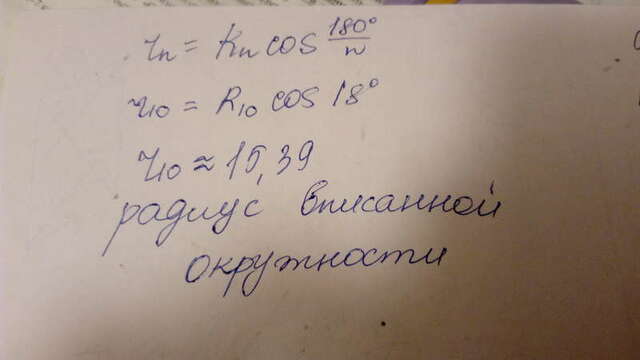 rₙ = Rₙ cos 180°/n
r₁₀ = R₁₀ cos 18°
r₁₀ ≈ 15,39
радиус вписанной
окружности